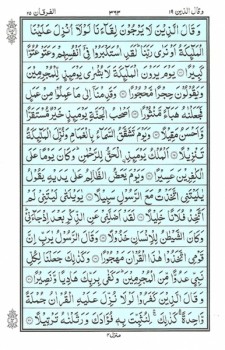 وقال الذين ١٩ ٣٦٣ الفرقان ٢٥
وَقَالَ الَّذِيْنَ لَا يَرْجُوْنَ لِقَآءَنَا لَوْلَآ اُنْزِلَ عَلَيْنَا
الْمَلٰٓئِكَةُ اَوْ نَرٰى رَبَّنَا ؕ لَقَدِ اسْتَكْبَرُوْا فِيْٓ اَنْفُسِهِمْ وَعَتَوْ عُتُوًّا
كَبِيْرًا ۝ يَوْمَ يَرَوْنَ الْمَلٰٓئِكَةَ لَا بُشْرٰى يَوْمَئِذٍ لِّلْمُجْرِمِيْنَ
وَيَقُوْلُوْنَ حِجْرًا مَّحْجُوْرًا ۝ وَقَدِمْنَآ اِلٰى مَا عَمِلُوْا مِنْ عَمَلٍ
فَجَعَلْنٰهُ هَبَآءً مَّنْثُوْرًا ۝ اَصْحٰبُ الْجَنَّةِ يَوْمَئِذٍ خَيْرٌ مُّسْتَقَرًّا
وَّاَحْسَنُ مَقِيْلًا ۝ وَيَوْمَ تَشَقَّقُ السَّمَآءُ بِالْغَمَامِ وَنُزِّلَ الْمَلٰٓئِكَةُ
تَنْزِيْلًا ۝ اَلْمُلْكُ يَوْمَئِذِ اۨلْحَقُّ لِلرَّحْمٰنِ ؕ وَكَانَ يَوْمًا عَلَى
الْكٰفِرِيْنَ عَسِيْرًا ۝ وَيَوْمَ يَعَضُّ الظَّالِمُ عَلٰى يَدَيْهِ يَقُوْلُ
يٰلَيْتَنِى اتَّخَذْتُ مَعَ الرَّسُوْلِ سَبِيْلًا ۝ يٰوَيْلَتٰى لَيْتَنِيْ لَمْ
اَتَّخِذْ فُلَانًا خَلِيْلًا ۝ لَقَدْ اَضَلَّنِيْ عَنِ الذِّكْرِ بَعْدَ اِذْ جَآءَنِيْ ؕ
وَكَانَ الشَّيْطٰنُ لِلْاِنْسَانِ خَذُوْلًا ۝ وَقَالَ الرَّسُوْلُ يٰرَبِّ اِنَّ
قَوْمِى اتَّخَذُوْا هٰذَا الْقُرْاٰنَ مَهْجُوْرًا ۝ وَكَذٰلِكَ جَعَلْنَا لِكُلِّ
نَبِيٍّ عَدُوًّا مِّنَ الْمُجْرِمِيْنَ ؕ وَكَفٰى بِرَبِّكَ هَادِيًا وَّنَصِيْرًا ۝
وَقَالَ الَّذِيْنَ كَفَرُوْا لَوْلَا نُزِّلَ عَلَيْهِ الْقُرْاٰنُ جُمْلَةً
وَّاحِدَةً ۛۚ كَذٰلِكَ ۛۚ لِنُثَبِّتَ بِهٖ فُؤَادَكَ وَرَتَّلْنٰهُ تَرْتِيْلًا ۝
منزل ٤